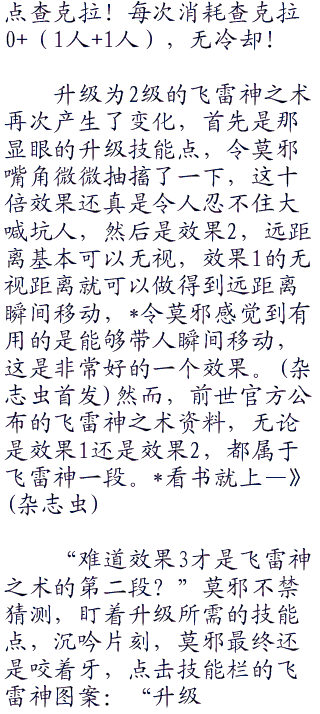 点查克拉！每次消耗查克拉
0+（1人+1人），无冷却！
升级为2级的飞雷神之术
再次产生了变化，首先是那
显眼的升级技能点，令莫邪
嘴角微微抽搐了一下，这十
倍效果还真是令人忍不住大
喊坑人，然后是效果2，远距
离基本可以无视，效果1的无
视距离就可以做得到远距离
瞬间移动，*令莫邪感觉到有
用的是能够带人瞬间移动，
这是非常好的一个效果。(杂
志虫首发)然而，前世官方公
布的飞雷神之术资料，无论
是效果1还是效果2，都属于
飞雷神一段。*看书就上—》
(杂志虫)
“难道效果3才是飞雷神
之术的第二段？”莫邪不禁
猜测，盯着升级所需的技能
点，沉吟片刻，莫邪最终还
是咬着牙，点击技能栏的飞
雷神图案：“升级